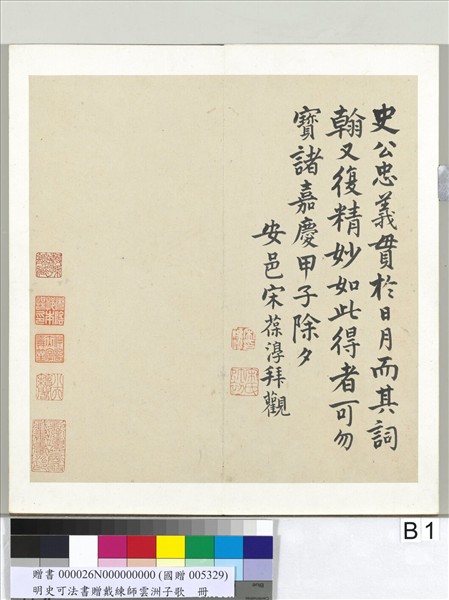 史公忠義貫於日月而其詞
翰又復精妙如此得者可勿
寶諸嘉慶甲子除夕
安邑宋葆淳拜觀
B1
贈書 000026N000000000 (國贈 005329)
明史可法書贈戴練師雲洲子歌 冊